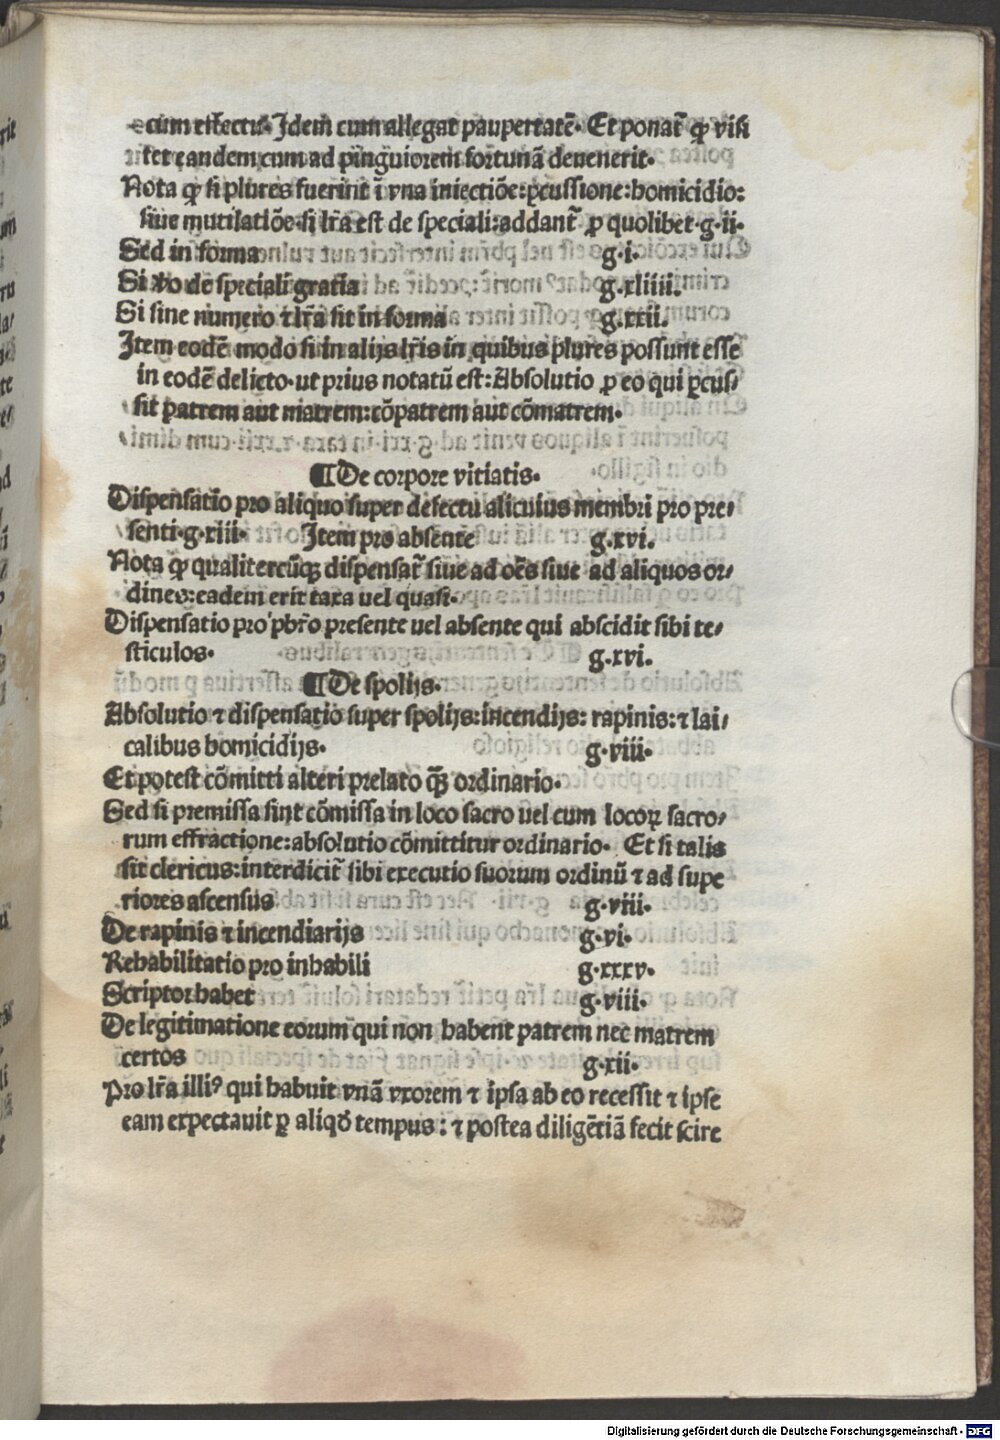 cum effectu. Idem cum allegat paupertatē. Et ponat̄ ꝙ visi
tet eandem cum ad pinguiorem fortunā deuenerit.
Nota ꝙ si plures fuerint ī vna iniectiōe: ꝑcussione: homicidio:
siue mutilatiōe. si lr̄a est de speciali: addant̄ ꝓ quolibet .g.ii.
Sed in forma g.i.
Si ṽo de speciali gratia g.xliiii.
Si sine numero ⁊ lr̄a sit in forma g.xxii.
Item eodē modo si in alijs lr̄is in quibus plures possunt esse
in eodē delicto. ut prius notatū est: Absolutio ꝓ eo qui ꝑcus⸗
sit patrem aut matrem: cōpatrem aut cōmatrem.
¶ De corpore vitiatis.
Dispensatio pro aliquo super defectu alicuius membri pro pre⸗
senti .g.xiii. Item pro absente g.xvi.
Nota ꝙ qualitercūqꝫ dispensat̄ siue ad oēs siue ad aliquos or⸗
dines: eadem erit taxa uel quasi.
Dispensatio pro pbr̄o presente uel absente qui abscidit sibi te⸗
sticulos. g.xvi.
¶ De spolijs.
Absolutio ⁊ dispensatio super spolijs: incendijs: rapinis: ⁊ lai⸗
calibus homicidijs. g.viii.
Et potest cōmitti alteri prelato qꝫ̄ ordinario.
Sed si premissa sint cōmissa in loco sacro uel cum locoꝝ sacro⸗
rum effractione: absolutio cōmittitur ordinario. Et si talis
sit clericus: interdicit̄ sibi executio suorum ordinū ⁊ ad supe
riores ascensus g.viii.
De rapinis ⁊ incendiarijs g.vi.
Rehabilitatio pro inhabili g.xxxv.
Scriptor habet g.viii.
De legitimatione eorum qui non habent patrem nec matrem
certos g.xii.
Pro lr̄a illiꝰ qui habuit vnā vxorem ⁊ ipsa ab eo recessit ⁊ ipse
eam expectauit ꝑ aliqđ tempus: ⁊ postea diligētiā fecit scire
Digitalisierung gefördert durch die Deutsche Forschungsgemeinschaft - DFG